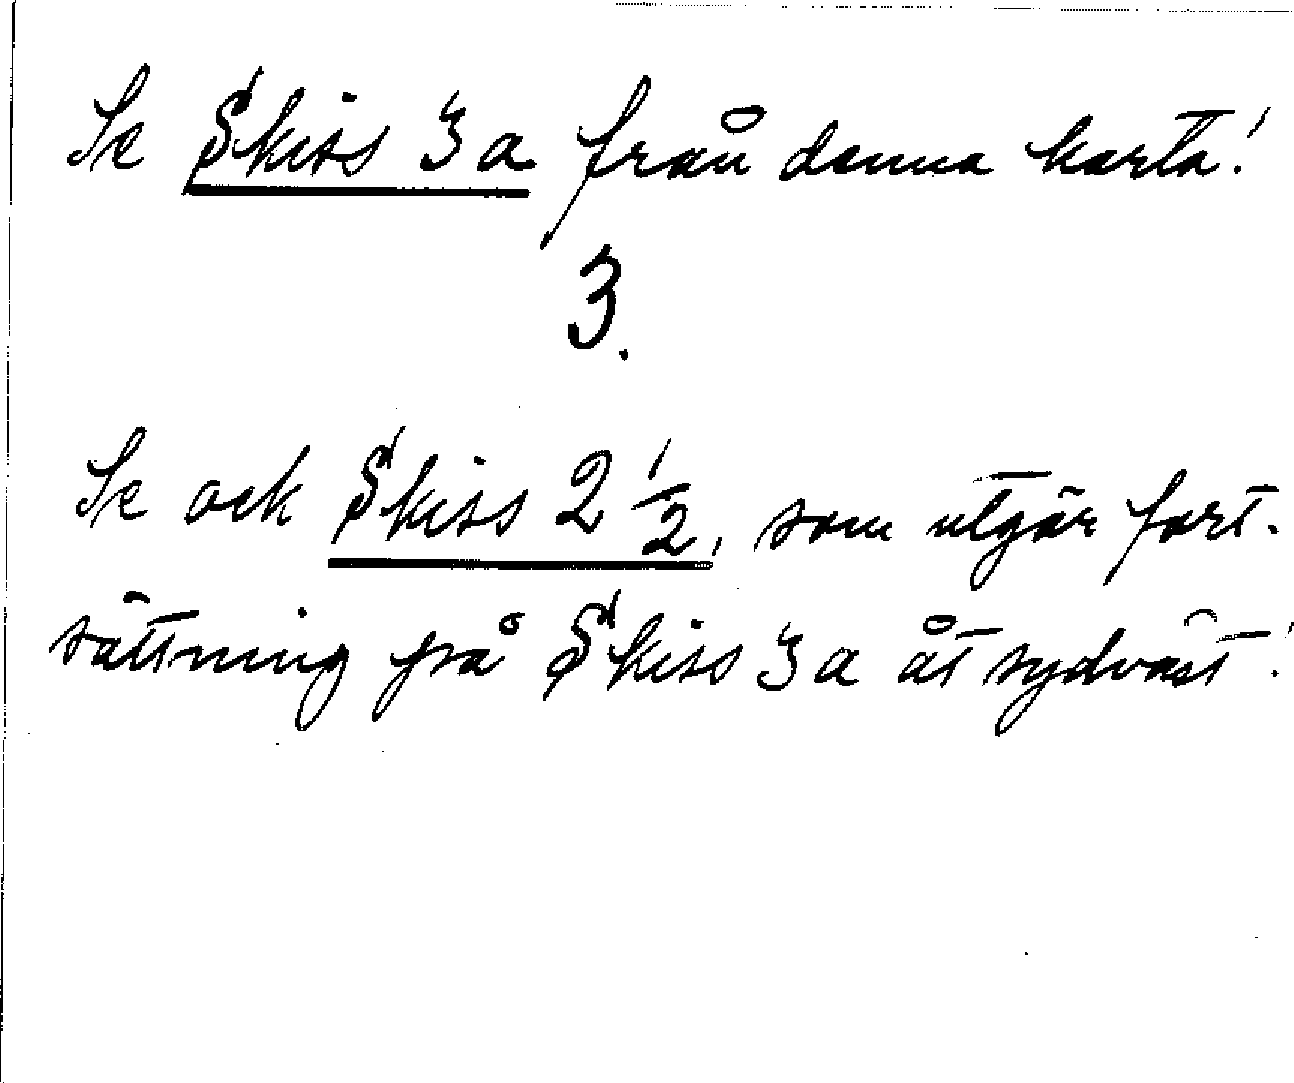 Se Skiss 3a från denna karta!
3.
Se ock Skiss 2 1/2, som utgör fort-
sättning på Skiss 3a åt sydväst!